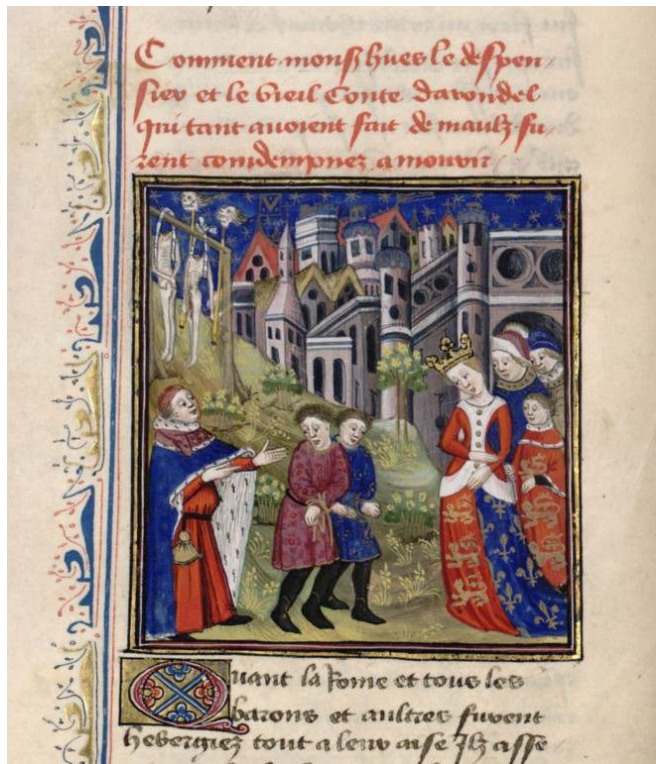 Comment monsʃ hues le despen
sier et le vieil Conte darondel
qui tant avoient fait de maulz fu
rent condempnez a mourir
Quant la Roine et tous les
barons et aultres furent
hebergiez tout a leur aise Ilz asse